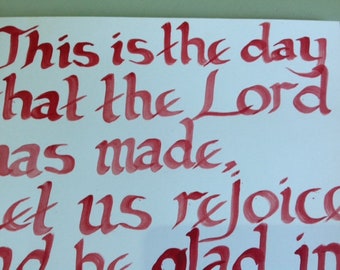 This is the day
that the Lord
has made,
let us rejoice
and be glad in